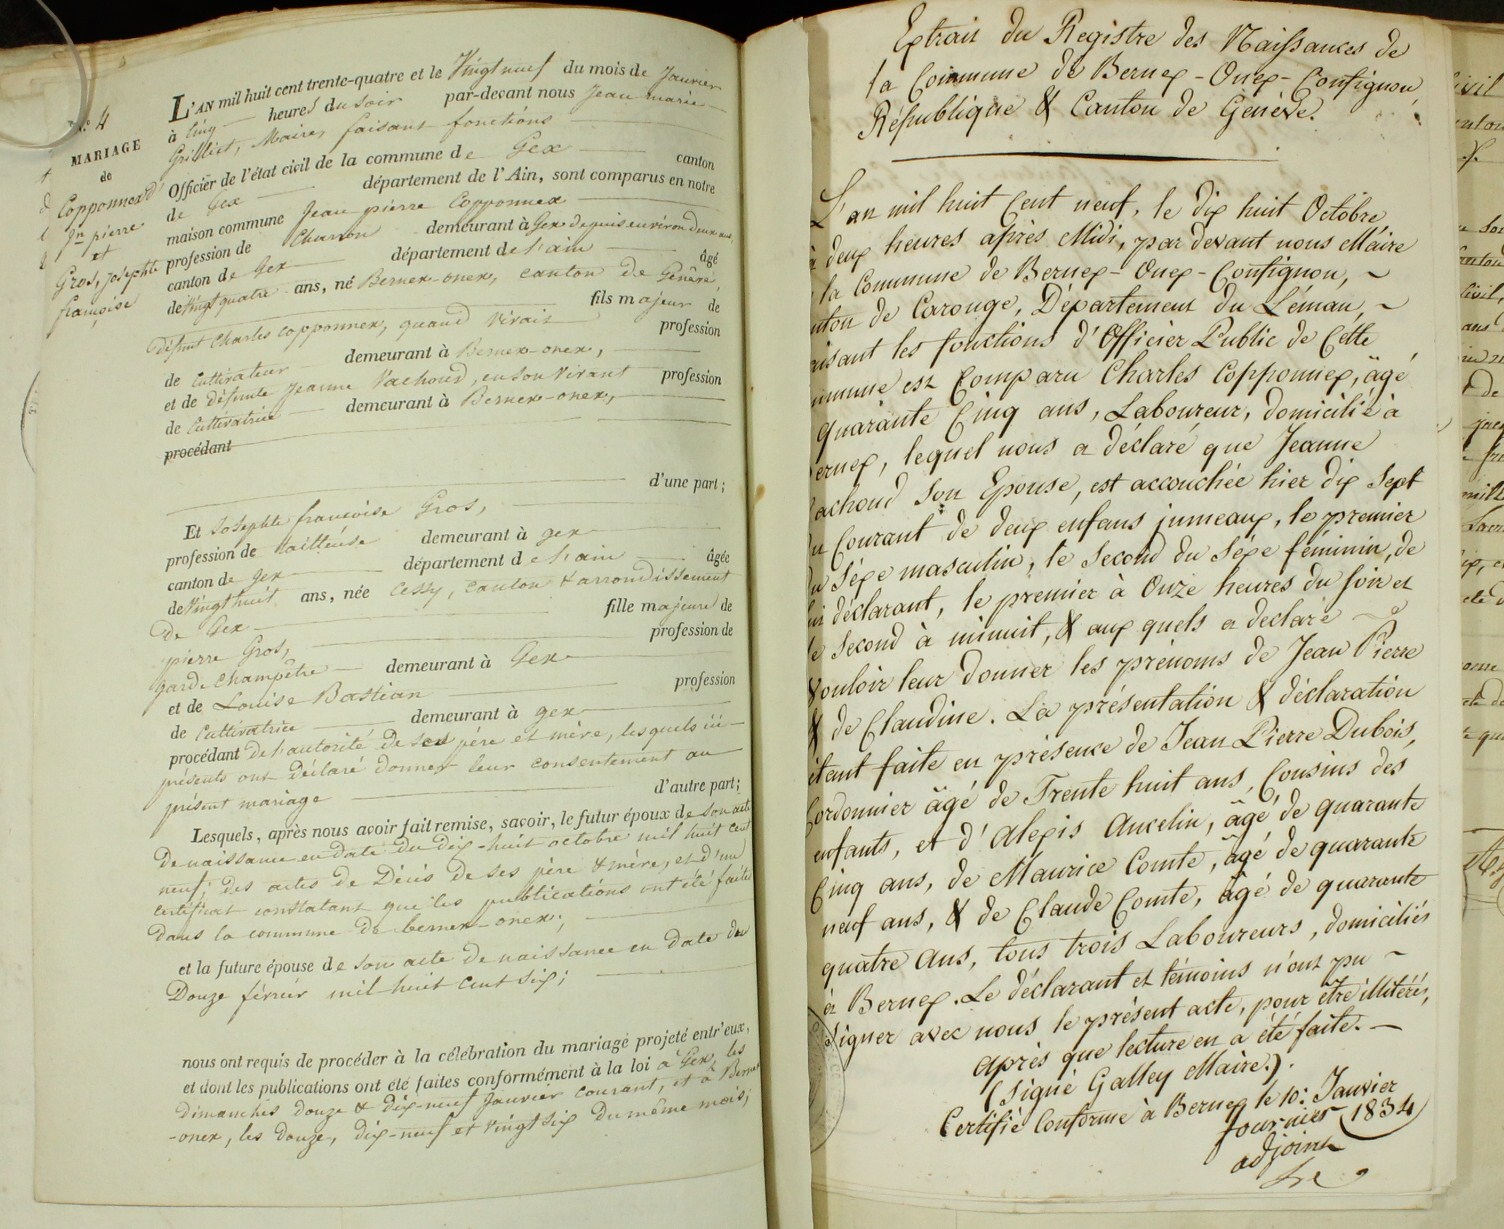 N.° 4
MARIAGE
de
Copponnex
Jn pierre
et
Gros, josephte
françoise
L'AN mil huit cent trente-quatre et le Vingt neuf du mois de Janvier
à Cinq heures du Soir par-devant nous Jean marie
Maire, faisant fonctions
Officier de l'état civil de la commune de Gex canton
de Gex département de l'Ain, sont comparus en notre
maison commune Jean pierre Copponnex
profession de Charron demeurant à Gex depuis environ deux ans
canton de Gex département de l'ain âgé
de Vingt quatre ans, né Bernex-onex, canton de Genève,
fils majeur de
défunt Charles copponnex, quand Vivait profession
de Cultivateur demeurant à Bernex-onex,
et de défunte Jeanne Vachoud, en son Vivant profession
de Cultivatrice demeurant à Bernex-onex,
procédant
d'une part;
Et Josephte françoise Gros,
profession de tailleuse demeurant à gex
canton de gex département de l'ain âgée
de Vingt huit ans, née Cessy, canton & arrondissement
de Gex fille majeure de
pierre Gros, profession de
garde champêtre demeurant à Gex
et de Louise Bastian profession
de Cultivatrice demeurant à gex
procédant de l'autorité de ses père et mère, lesquels ici
présents ont déclaré donner leur consentement au
présent mariage d'autre part;
Lesquels, après nous avoir fait remise, savoir, le futur époux de son acte
de naissance en date du dix-huit octobre mil huit cent
neuf; des actes de Décès de ses père & mère, et d'un
certificat constatant que les publications ont été faites
dans la commune de bernex-onex;
et la future épouse de son acte de naissance en date du
Douze février mil huit cent six;
nous ont requis de procéder à la célébration du mariage projeté entr'eux,
et dont les publications ont été faites conformément à la loi à Gex, les
dimanches douze & dix-neuf Janvier courant, et à Bernex
-onex, les douze, dix-neuf et Vingt six du même mois;
Extrait du Registre des Naissances de
la Commune de Bernex-Onex-Confignon,
République & Canton de Genève.
L'an mil huit Cent neuf, le dix huit Octobre
à deux heures après Midi, par devant nous Maire
la Commune de Bernex-Onex-Confignon,
de Carouge, Département du Léman,
les fonctions d'Officier Public de Cette
est Comparu Charles Copponnex, âgé
quarante Cinq ans, Laboureur, domicilié à
lequel nous a déclaré que Jeanne
son Epouse, est accouchée hier dix Sept
Courant de deux enfans jumeaux, le premier
Séxe masculin, le Second du Séxe féminin, de
déclarant, le premier à Onze heures du soir et
Second à minuit, & aux quels a déclaré
vouloir leur donner les prénoms de Jean Pierre
& de Claudine. La présentation & déclaration
étant faite en présence de Jean Pierre Dubois,
Cordonnier âgé de Trente huit ans, Cousins des
enfants, et d'Alexis Ancelin, âgé de quarante
Cinq ans, de Maurice Comte, âgé de quarante
neuf ans, & de Claude Comte, âgé de quarante
quatre ans, tous trois Laboureurs, domiciliés
à Bernex. Le déclarant et témoins n'ont pu
Signer avec nous le présent acte, pour être illitérés,
après que lecture en a été faite.
(Signé Galley Maire.)
Certifié Conforme à Bernex le 10: Janvier
1834
fournier
adjoint